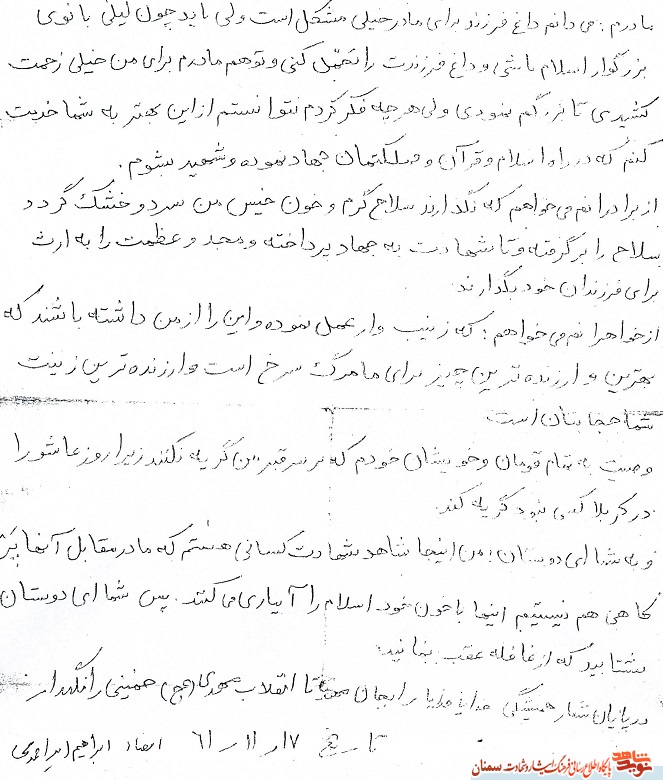 مادرم : می دانم داغ فرزند برای مادر خیلی مشکل است ولی باید چون لیلی بانوی
بزرگوار اسلام باشی و داغ فرزندت را تحمّل کنی و تو هم مادرم برای من خیلی زحمت
کشیدی تا بزرگم نمودی ولی هر چه فکر کردم نتوانستم از این بهتر به شما خدمت
کنم که در راه اسلام و قرآن و مملکتمان جهاد نموده و شهید شوم .
از برادرانم می خواهم که نگذارند سلاح گرم و خون خیس من سرد و خشک گردد
سلاح را برگرفته و تا شهادت به جهاد پرداخته و مجد و عظمت را به ارث
برای فرزندان خود بگذارند
از خواهرانم می خواهم : که زینب وار عمل نموده و این را از من داشته باشند که
بهترین و ارزنده ترین چیز برای ما مرگ سرخ است و ارزنده ترین زینت
شما حجابتان است
وصیت به تمام قومان و خویشان خودم که بر سر قبر من گریه نکنند زیرا روز عاشورا
در کربلا کسی نبود گریه کند
و به شما ای دوستان : من اینجا شاهد شهادت کسانی هستم که ما در مقابل آنها پَرِ
کاهی هم نیستیم اینها با خون خود اسلام را آبیاری می کنند . پس شما ای دوستان
بشتابید که از غافله عقب نمانید
در پایان شعار همیشگی خدایا خدایا تا انقلاب مهدی (عج) خمینی را نگهدار
تاریخ ۱۷ ر ۱۱ ر ۶۱ امضاء ابراهیم
پایگاه اطلاع رسانی فرهنگ ایثار و شهادت سمنان
نوید شاهد